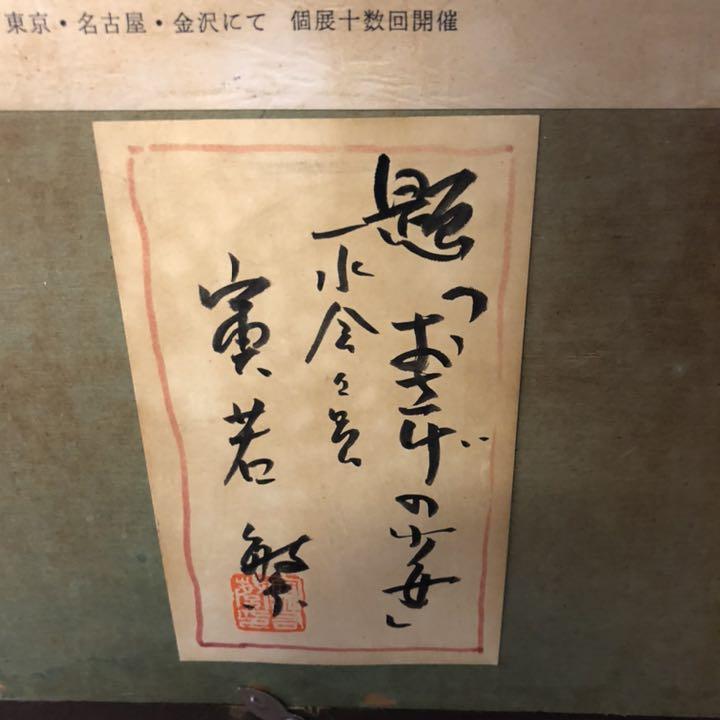 東京・名古屋・金沢にて 個展十数回開催
題「おさげの少女」
一水会々員
寅若 繁